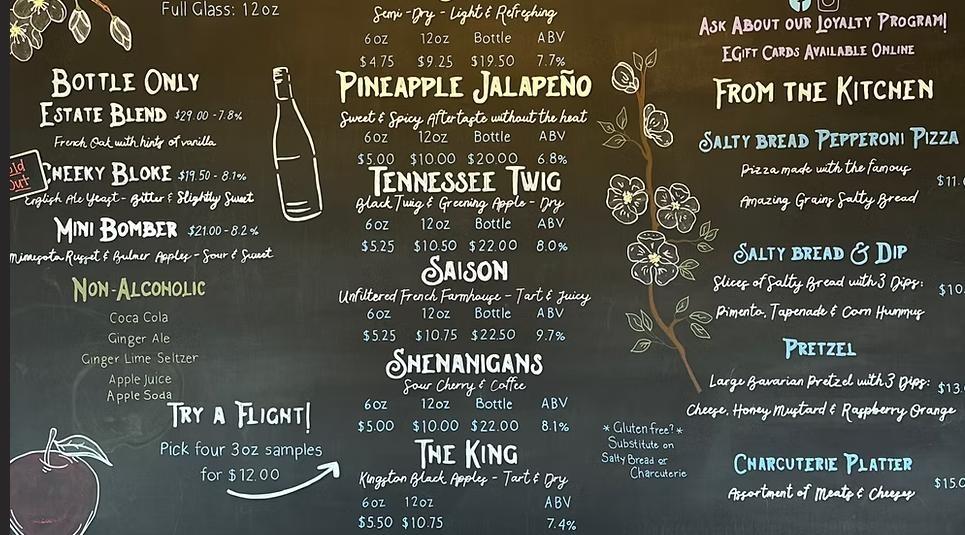 Full Glass: 12oz
BOTTLE ONLY
ESTATE BLEND $29.00 - 7.8%
French Oak with hints of vanilla
Sold Out
CHEEKY BLOKE $19.50 - 8.1%
English Ale Yeast - Bitter & Slightly Sweet
MINI BOMBER $21.00 - 8.2%
Minnesota Russet & Bulmer Apples - Sour & Sweet
NON-ALCOHOLIC
Coca Cola
Ginger Ale
Ginger Lime Seltzer
Apple Juice
Apple Soda
TRY A FLIGHT!
Pick four 3oz samples
for $12.00
Semi-Dry - Light & Refreshing
6oz 12oz Bottle ABV
$4.75 $9.25 $19.50 7.7%
PINEAPPLE JALAPEÑO
Sweet & Spicy Aftertaste without the heat
6oz 12oz Bottle ABV
$5.00 $10.00 $20.00 6.8%
TENNESSEE TWIG
Black Twig & Greening Apple - Dry
6oz 12oz Bottle ABV
$5.25 $10.50 $22.00 8.0%
SAISON
Unfiltered French Farmhouse - Tart & Juicy
6oz 12oz Bottle ABV
$5.25 $10.75 $22.50 9.7%
SHENANIGANS
Sour Cherry & Coffee
6oz 12oz Bottle ABV
$5.00 $10.00 $22.00 8.1%
THE KING
Kingston Black Apples - Tart & Dry
6oz 12oz ABV
$5.50 $10.75 7.4%
ASK ABOUT OUR LOYALTY PROGRAM!
EGIFT CARDS AVAILABLE ONLINE
FROM THE KITCHEN
SALTY BREAD PEPPERONI PIZZA
Pizza made with the famous
$11.
Amazing Grains Salty Bread
SALTY BREAD & DIP
Slices of Salty Bread with 3 Dips: $10.
Pimento, Tapenade & Corn Hummus
PRETZEL
Large Bavarian Pretzel with 3 Dips: $13.
Cheese, Honey Mustard & Raspberry Orange
* Gluten free? *
Substitute on
Salty Bread or
Charcuterie
CHARCUTERIE PLATTER
Assortment of Meats & Cheeses $15.